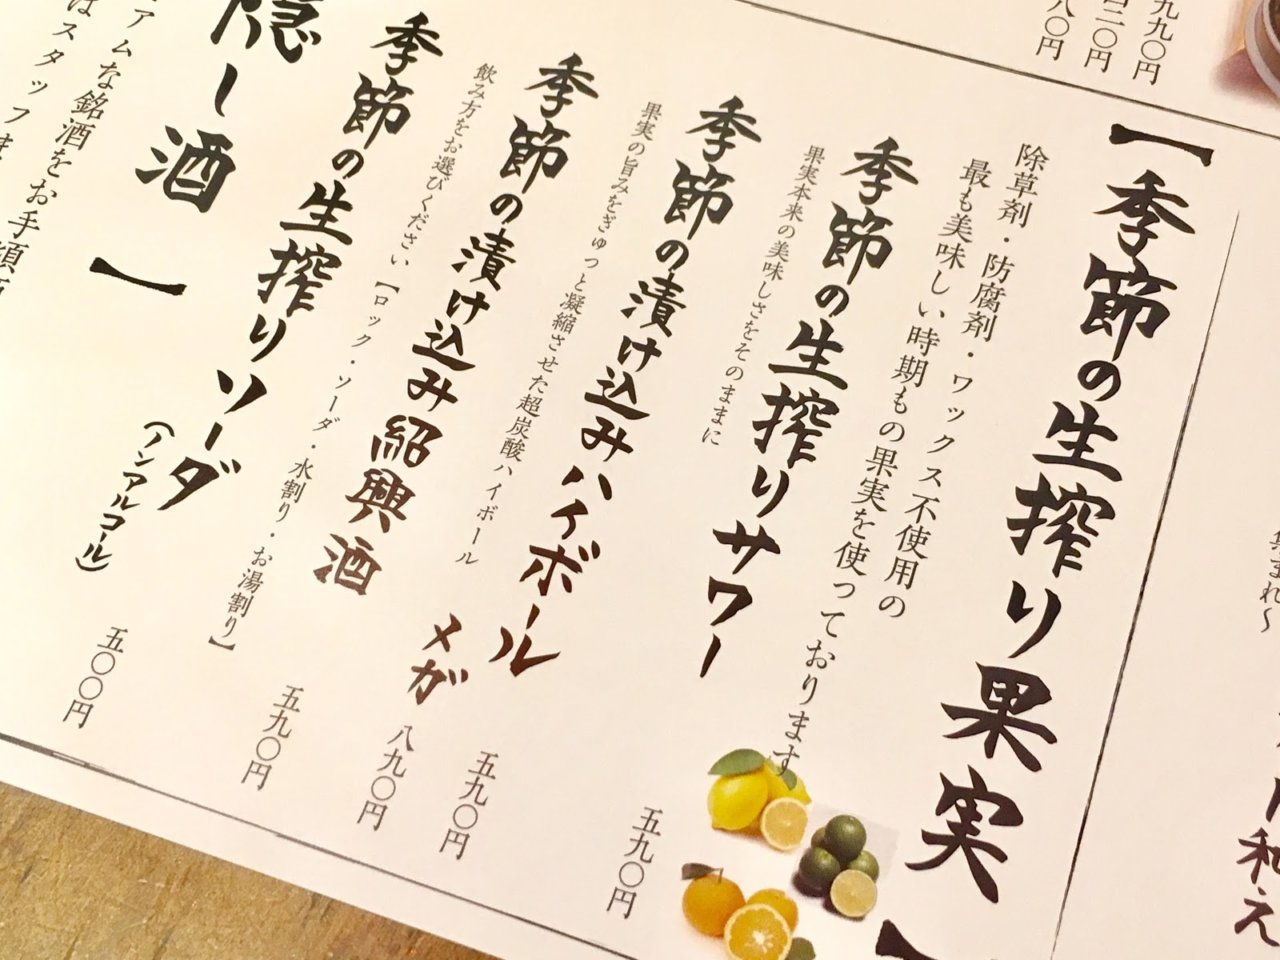 九九〇円
二〇円
八〇円
【季節の生搾り果実】
除草剤・防腐剤・ワックス不使用の
最も美味しい時期もの果実を使っております
季節の生搾りサワー
五九〇円
果実本来の美味しさをそのままに
季節の漬け込みハイボール
五九〇円
メガ
八九〇円
果実の旨みをぎゅっと凝縮させた超炭酸ハイボール
季節の漬け込み紹興酒
五九〇円
飲み方をお選びください【ロック・ソーダ・水割り・お湯割り】
季節の生搾りソーダ
(ノンアルコール)
五〇〇円
隠し酒】
アムな銘酒をお手頃
はスタッフま
和え